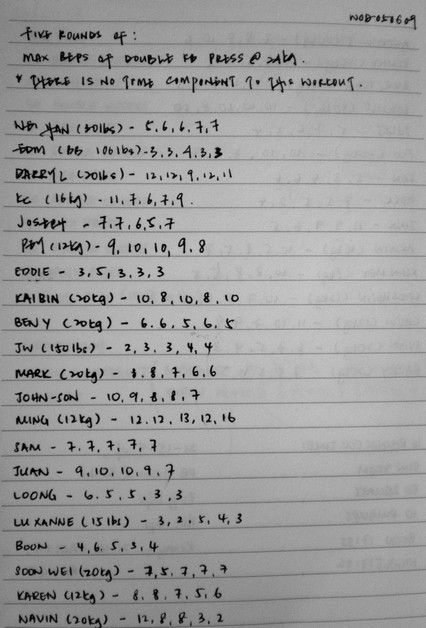 WOD-050609
FIVE ROUNDS OF:
MAX REPS OF DOUBLE KB PRESS @ 24kg.
* THERE IS NO TIME COMPONENT TO THIS WORKOUT.
WEI YAN (30lbs) - 5, 6, 6, 7, 7
EDM (BB 106lbs) - 3, 3, 4, 3, 3
DARRYL (20lbs) - 12, 12, 9, 12, 11
KC (16kg) - 11, 7, 6, 7, 9.
JOSEPH - 7, 7, 6, 5, 7
PEY (12kg) - 9, 10, 10, 9, 8
EDDIE - 3, 5, 3, 3, 3
KAIBIN (20kg) - 10, 8, 10, 8, 10
BENY (20kg) - 6, 6, 5, 6, 5
JW (150lbs) - 2, 3, 3, 4, 4
MARK (20kg) - 8, 8, 7, 6, 6
JOHN-SON - 10, 9, 8, 8, 7
MING (12kg) - 12, 12, 13, 12, 16
SAM - 7, 7, 7, 7, 7
JUAN - 9, 10, 10, 9, 7
LOONG - 6, 5, 5, 3, 3
LUXANNE (15lbs) - 3, 2, 5, 4, 3
BOON - 4, 6, 5, 3, 4
SOON WEI (20kg) - 7, 5, 7, 7, 7
KAREN (12kg) - 8, 8, 7, 5, 6
NAVIN (20kg) - 12, 8, 8, 3, 2